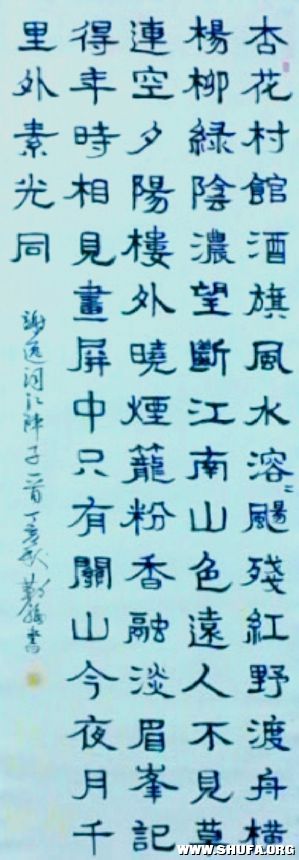 杏花村館酒旗風水溶〻颺殘紅野渡舟橫
楊柳綠陰濃望斷江南山色遠人不見草
連空夕陽樓外曉煙籠粉香融淡眉峯記
得年時相見畫屏中只有關山今夜月千
里外素光同
謝逸詞江陣子一首丁亥秋書
WWW.SHUFA.ORG